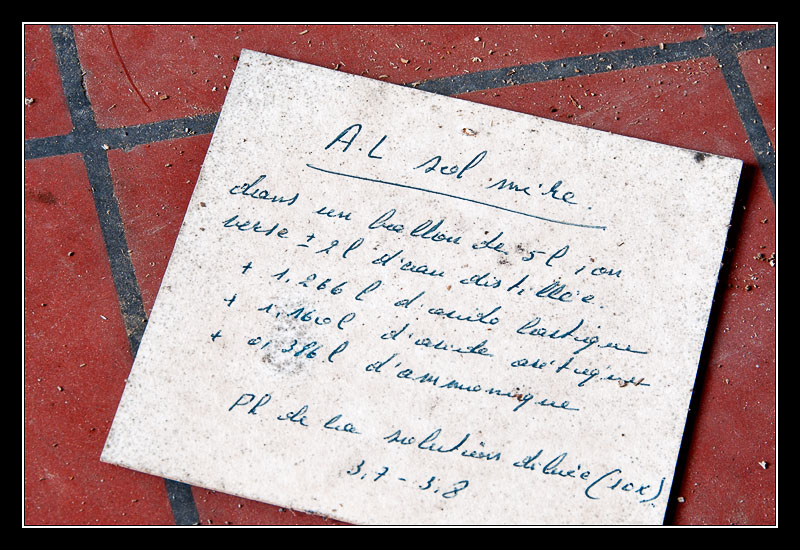 A.L sol. mère.
dans un ballon de 5l, on
verse ± 2l d'eau distillée.
+ 1,266 l d'acide lactique
+ 1,160 l d'acide acétique
+ 0,386 l d'ammoniaque
Ph de la solution diluée (10x)
3,7 - 3,8